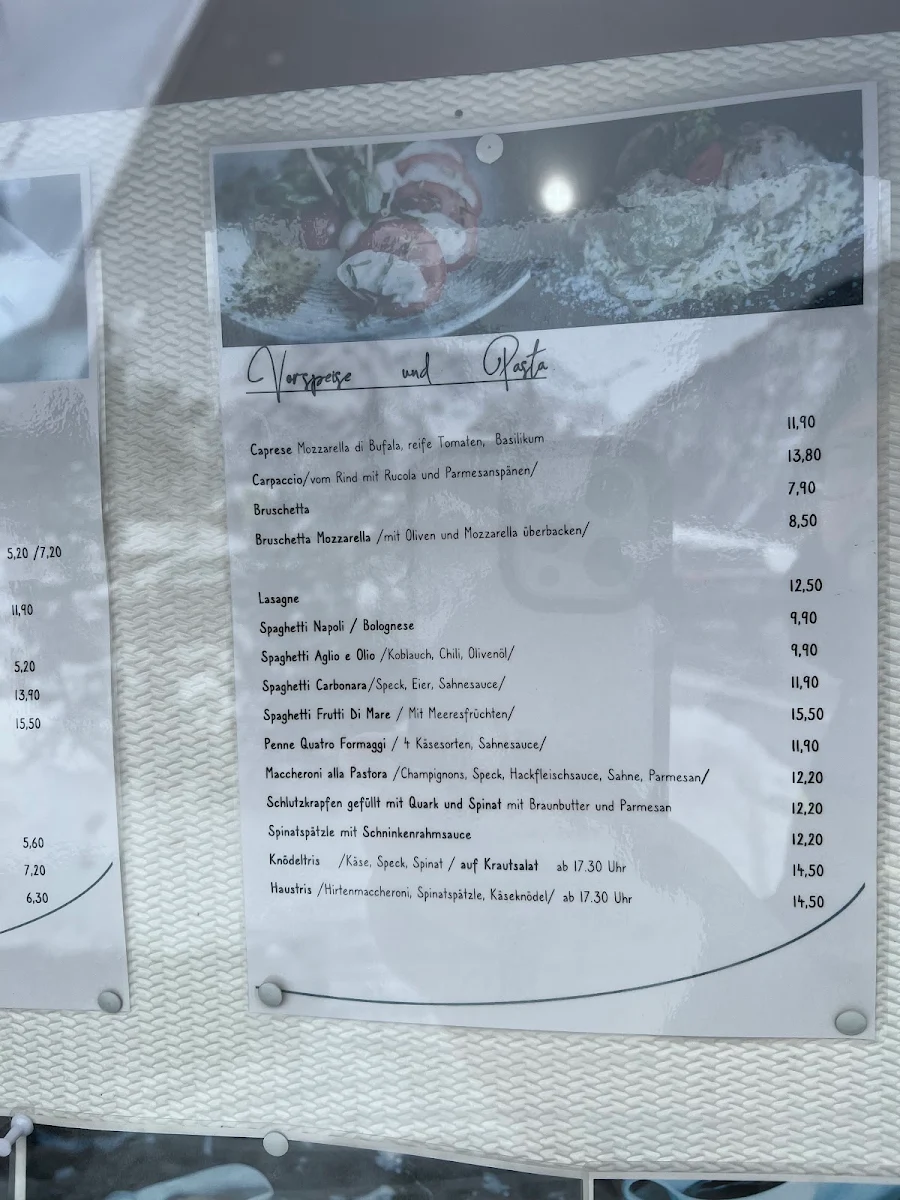 5,20 /7,20
11,90
5,20
13,90
15,50
5,60
7,20
6,30
Vorspeise und Pasta
Caprese Mozzarella di Bufala, reife Tomaten, Basilikum 11,90
Carpaccio/vom Rind mit Rucola und Parmesanspänen/ 13,80
Bruschetta 7,90
Bruschetta Mozzarella /mit Oliven und Mozzarella überbacken/ 8,50
Lasagne 12,50
Spaghetti Napoli / Bolognese 9,90
Spaghetti Aglio e Olio /Koblauch, Chili, Olivenöl/ 9,90
Spaghetti Carbonara/Speck, Eier, Sahnesauce/ 11,90
Spaghetti Frutti Di Mare / Mit Meeresfrüchten/ 15,50
Penne Quatro Formaggi / 4 Käsesorten, Sahnesauce/ 11,90
Maccheroni alla Pastora /Champignons, Speck, Hackfleischsauce, Sahne, Parmesan/ 12,20
Schlutzkrapfen gefüllt mit Quark und Spinat mit Braunbutter und Parmesan 12,20
Spinatspätzle mit Schninkenrahmsauce 12,20
Knödeltris /Käse, Speck, Spinat / auf Krautsalat ab 17.30 Uhr 14,50
Haustris /Hirtenmaccheroni, Spinatspätzle, Käseknödel/ ab 17.30 Uhr 14,50